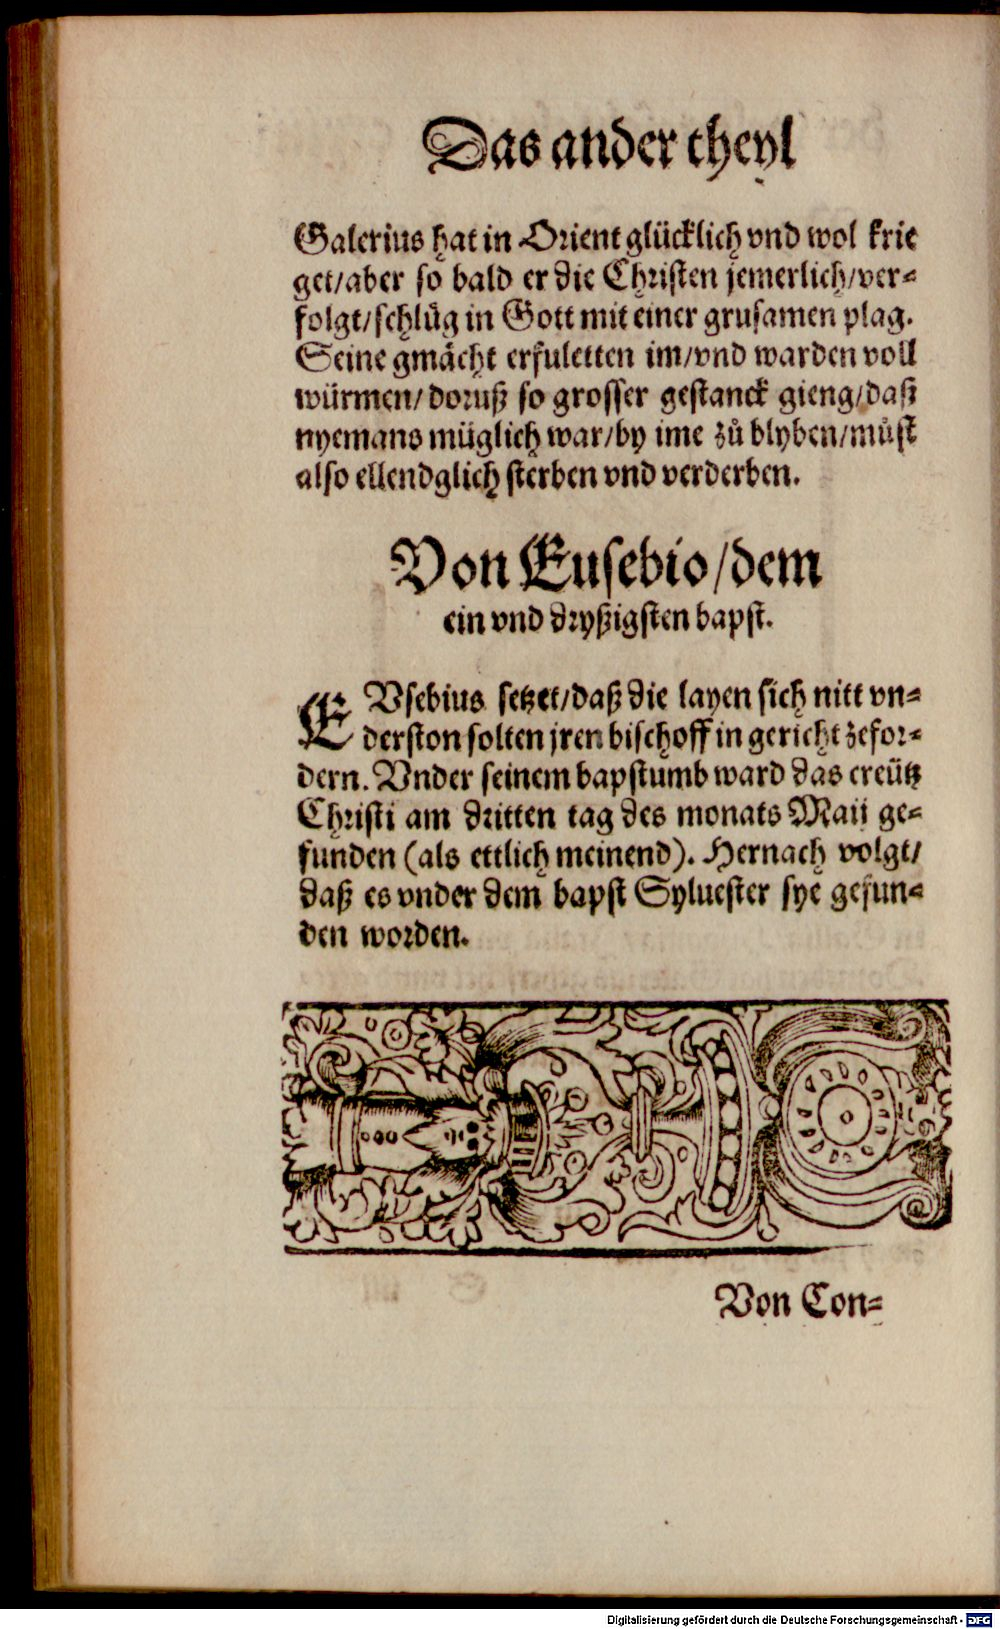 Das ander theyl
Galerius hat in Orient glücklich vnd wol krie
get/aber so bald er die Christen jemerlich/ver⸗
folgt/schlůg in Gott mit einer grusamen plag.
Seine gmächt erfuletten im/vnd warden voll
würmen/doruß so grosser gestanck gieng/daß
nyemans müglich war/by ime zů blyben/můst
also ellendglich sterben vnd verderben.
Von Eusebio/dem
ein vnd dryßigsten bapst.
EVsebius setzet/daß die layen sich nitt vn⸗
derston solten jren bischoff in gericht zefor⸗
dern. Vnder seinem bapstumb ward das creütz
Christi am dritten tag des monats Maij ge⸗
funden (als ettlich meinend). Hernach volgt/
daß es vnder dem bapst Syluester sye gefun⸗
den worden.
Von Con⸗
Digitalisierung gefördert durch die Deutsche Forschungsgemeinschaft - DFG